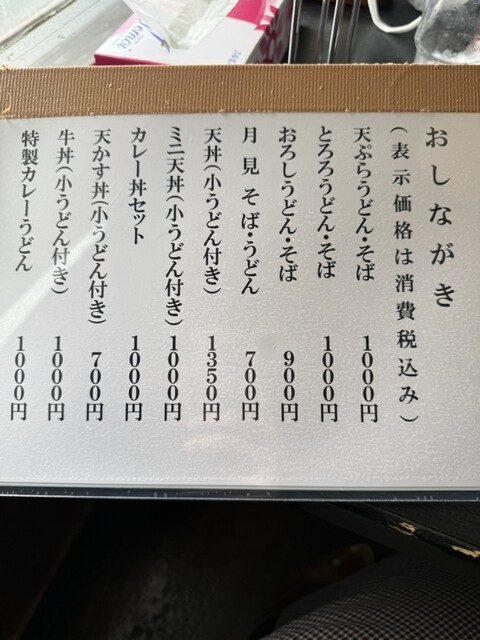 おしながき
(表示価格は消費税込み)
天ぷらうどん・そば 1000円
とろろうどん・そば 1000円
おろしうどん・そば 900円
月見そば・うどん 700円
天丼(小うどん付き) 1350円
ミニ天丼(小うどん付き) 1000円
カレー丼セット 1000円
天かす丼(小うどん付き) 700円
牛丼(小うどん付き) 1000円
特製カレーうどん 1000円